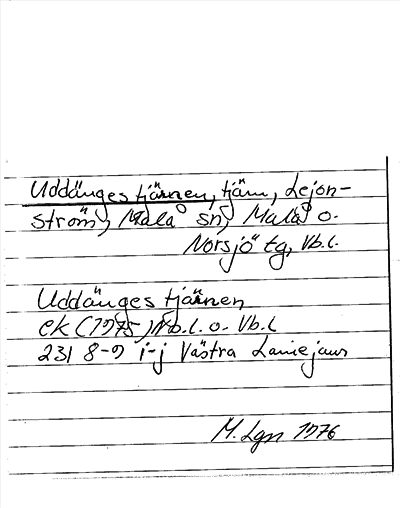 Uddänges tjärnen, tjärn, Lejon-
ström, Malå sn, Malå o.
Norsjö tg, Vb.l.
Uddänges tjärnen
ek (1975) Nb.l. o. Vb.l
231 8-9 i-j Västra Lainejaur
M. Lgn 1976